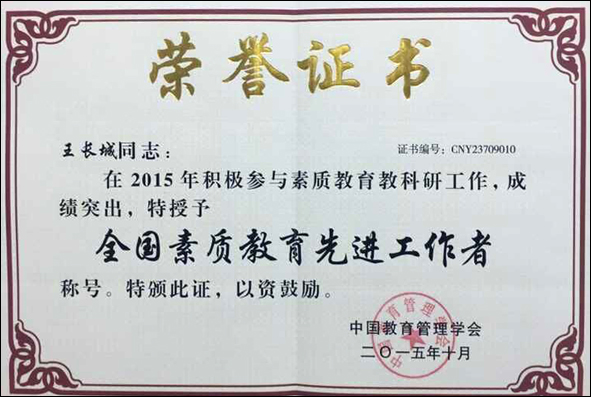 荣誉证书
王长城同志：
证书编号：CNY23709010
在 2015 年积极参与素质教育教科研工作，成
绩突出，特授予
全国素质教育先进工作者
称号。特颁此证，以资鼓励。
中国教育管理学会
二〇一五年十月
中国教育管理学会